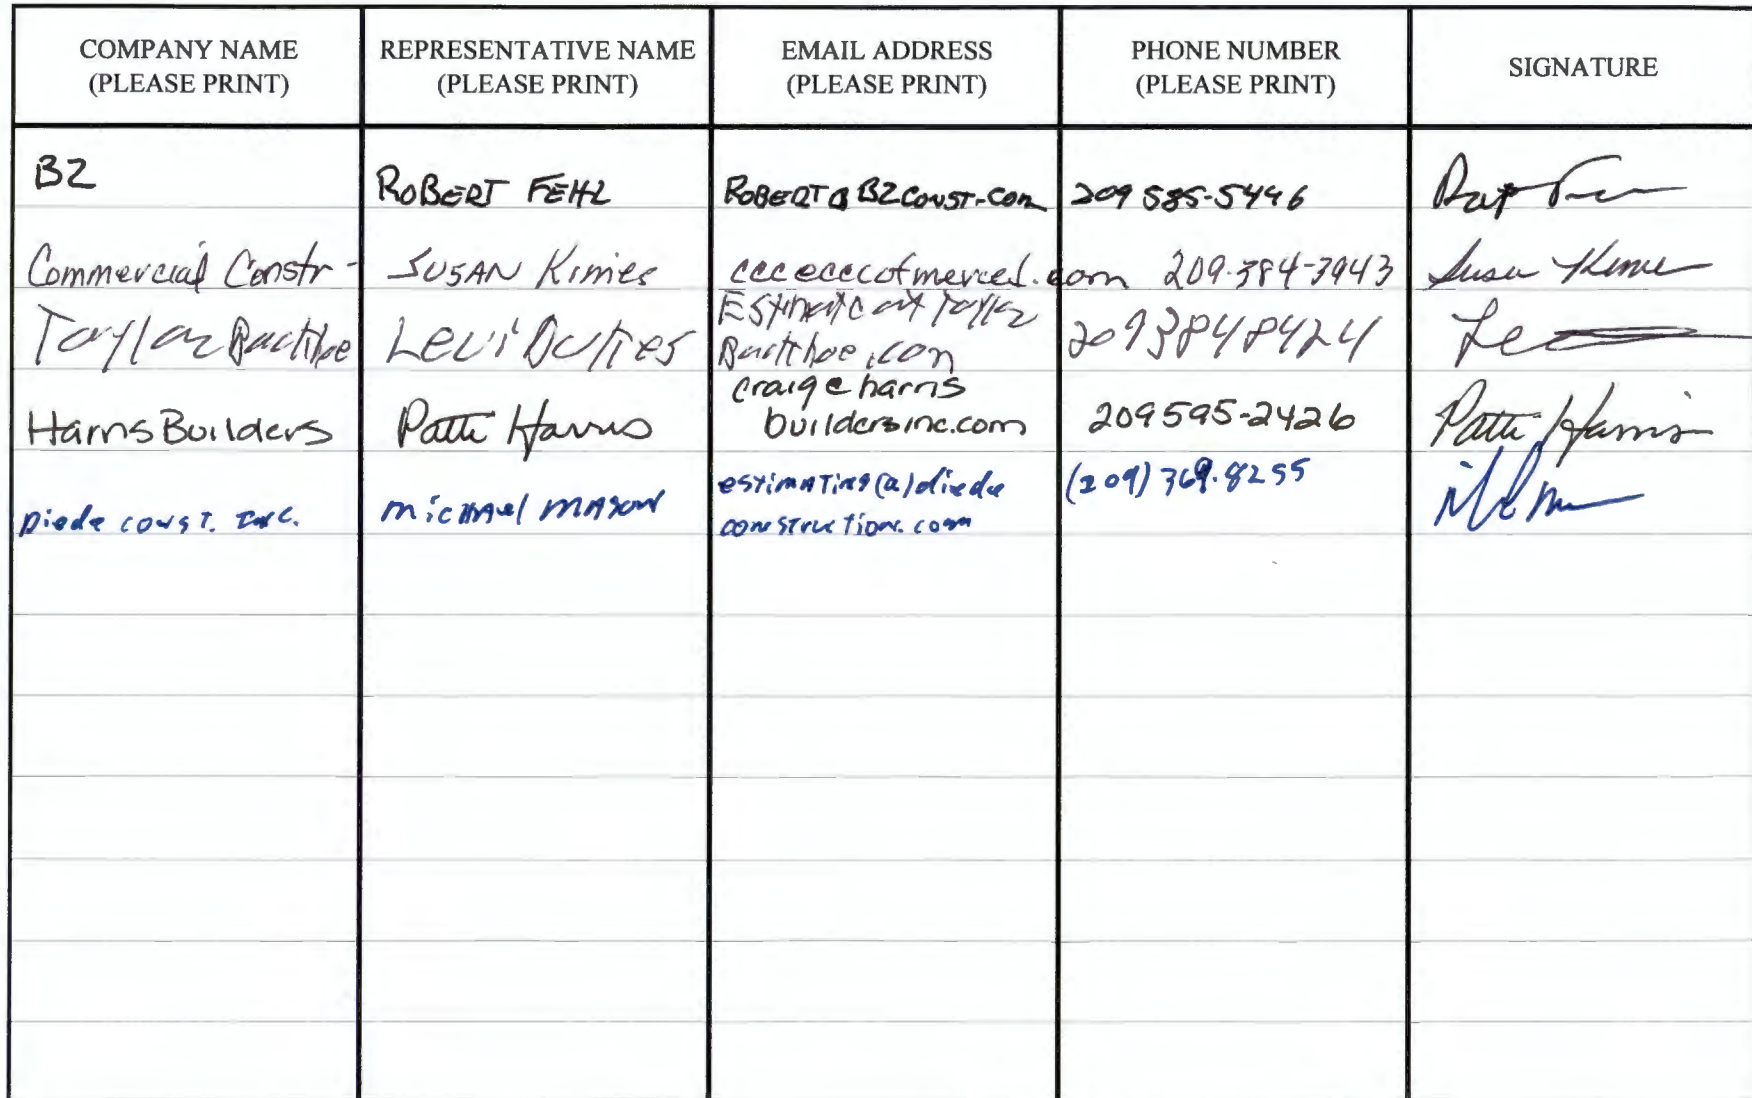 COMPANY NAME
(PLEASE PRINT)
REPRESENTATIVE NAME
(PLEASE PRINT)
EMAIL ADDRESS
(PLEASE PRINT)
PHONE NUMBER
(PLEASE PRINT)
SIGNATURE
B2
ROBERT FEHL
ROBERT@B2CONST.COM
209 585-5446
Commercial Constr-
SUSAN Kimies
ccc@cccofmerced.com
209-384-3943
Taylor Backhoe
Levi
Estimate at Taylor
Backhoe.com
2093848424
Harris Builders
Patti Harris
craig@harris
buildersinc.com
209595-2426
Patti Harris
Diede const. Inc.
michael mason
estimating(a)diede
construction.com
(209) 369.8255